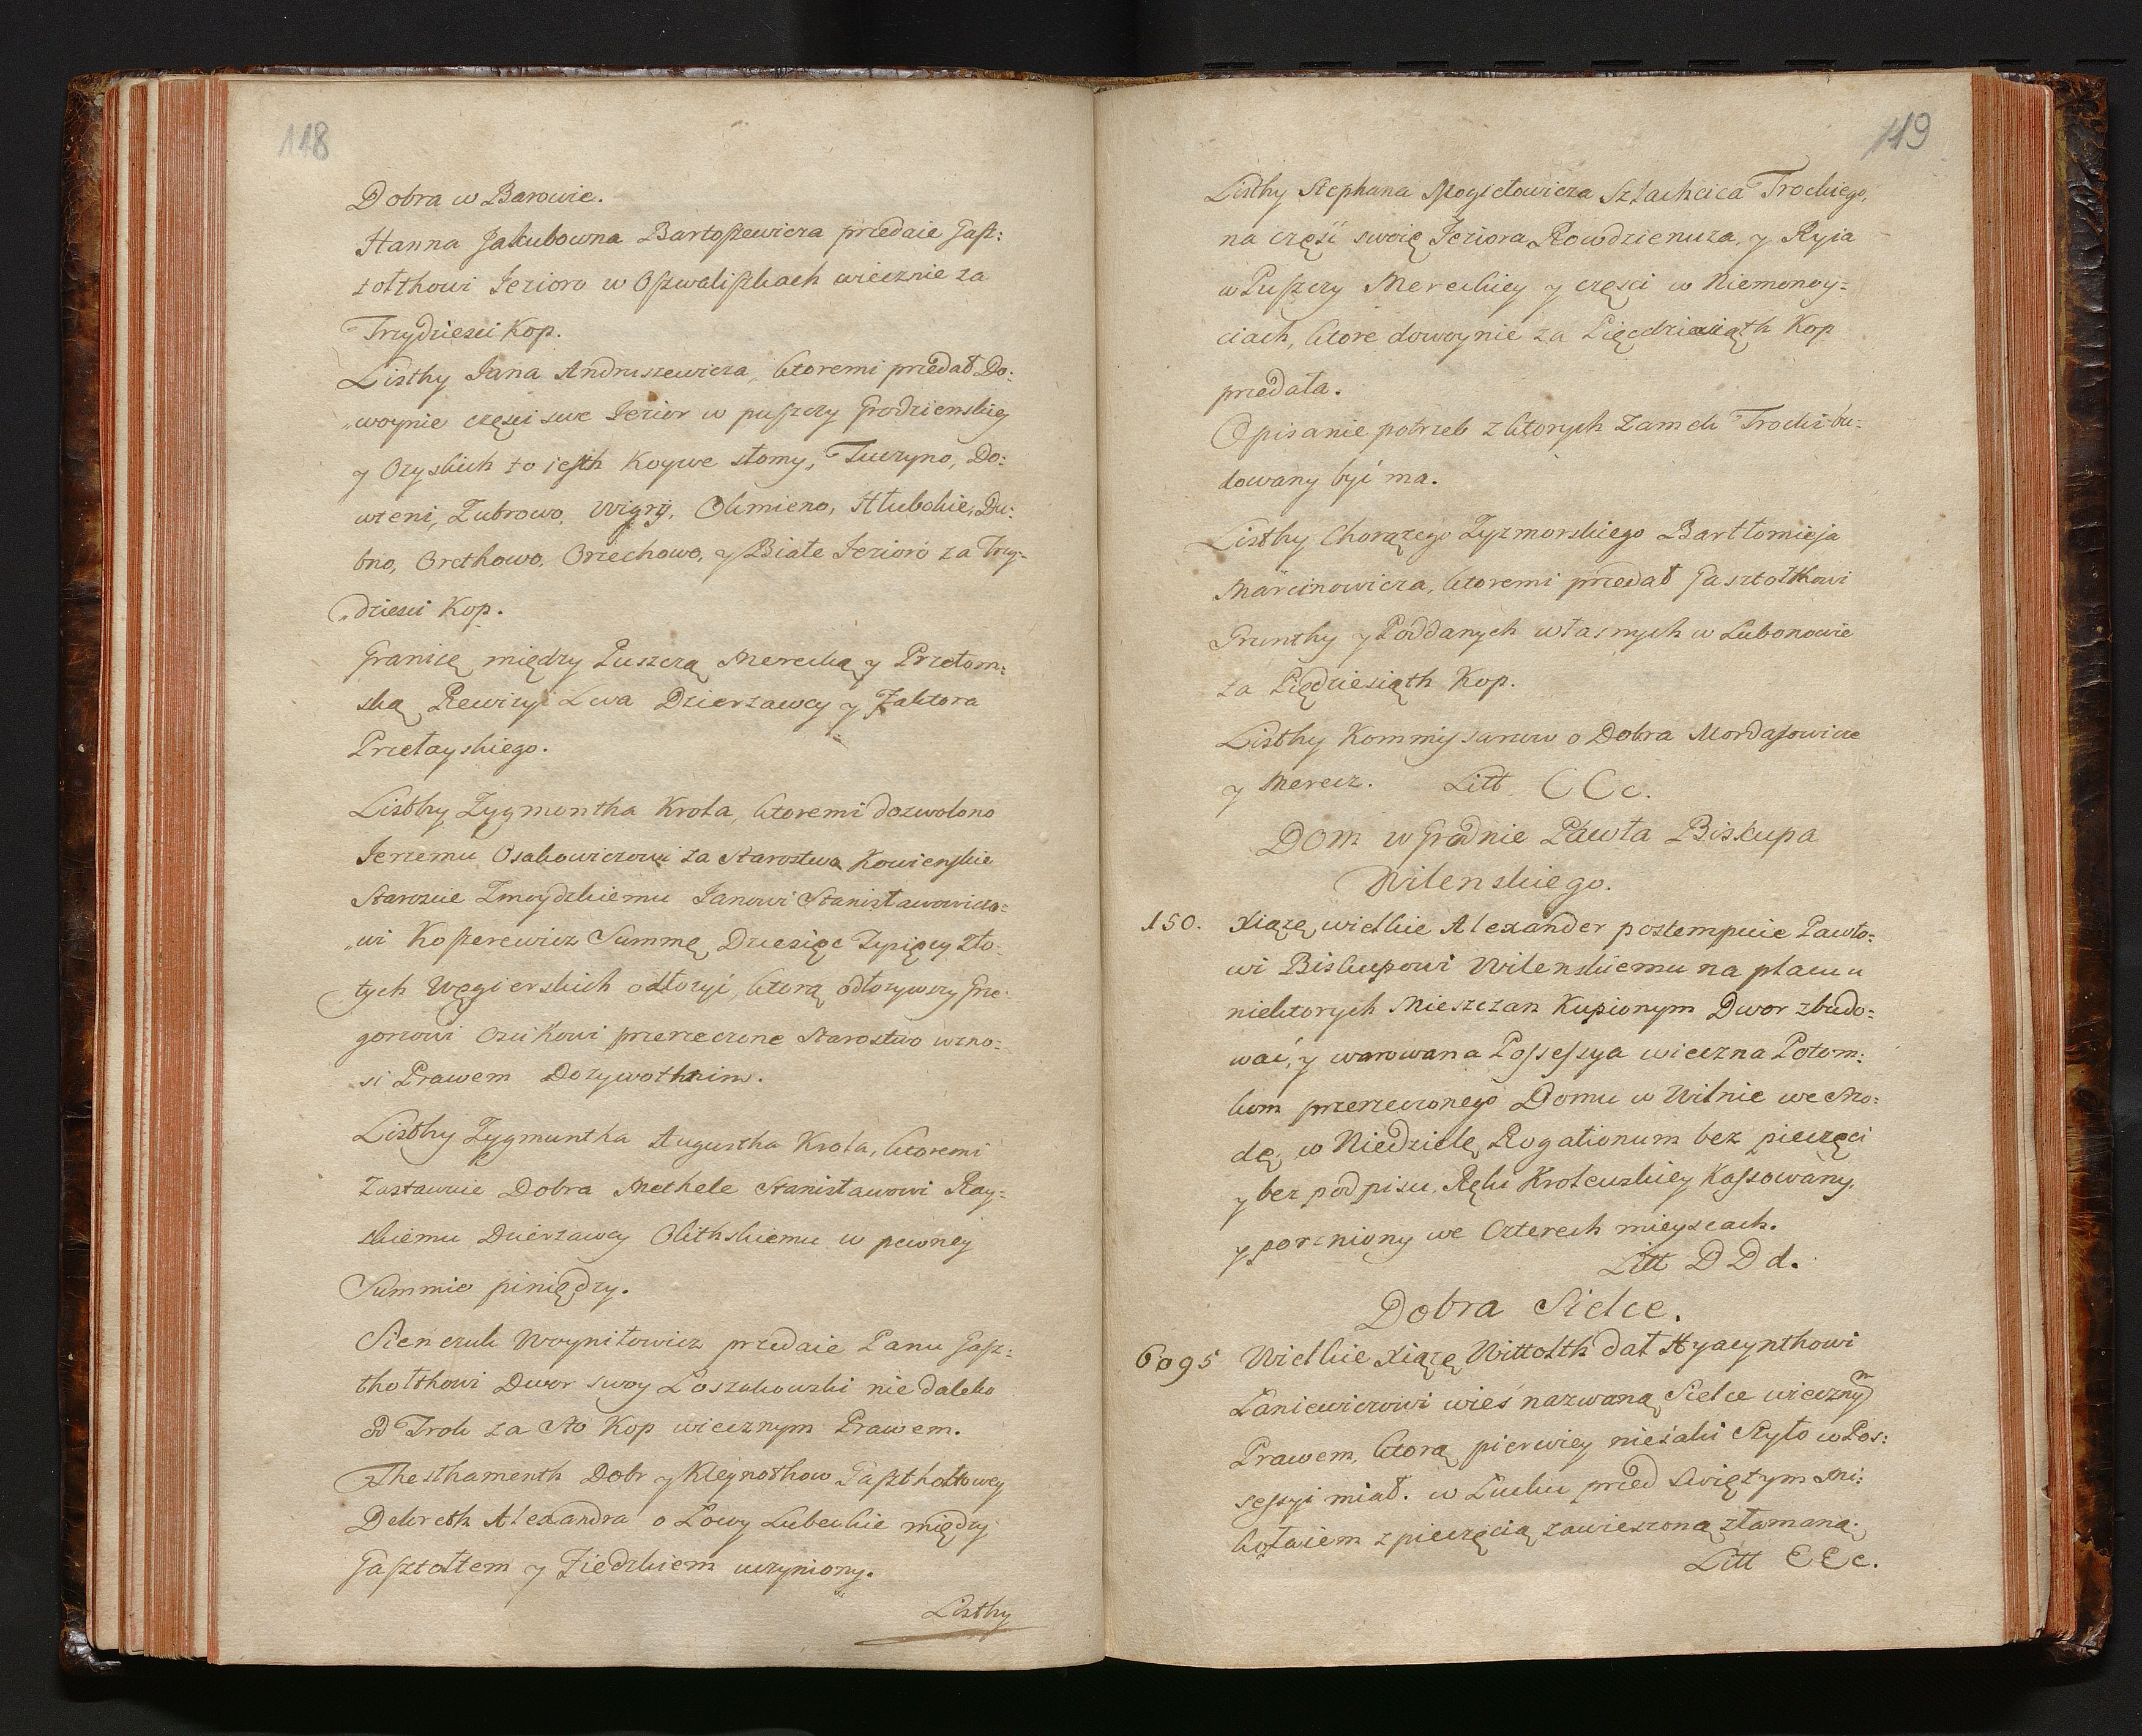 118
Dobra w Barowie.
Hanna Jakubowna Bartoszewicza przedaie Gasz:
tołthowi Jezioro w Oszwaliszkach wiecznie za
Trzydziesci Kop.
Listhy Jana Andruszewicza, ktoremi przedał Do:
„woynie częsci swe Jezior w puszczy Grodzienskiey
y Ozyskich to iesth Koywe stomy, Tuczyno, Do:
wieni, Zubrowo, Wigry, Okmieno, Hłubokie, Du:
bno, Orethowo, Orzechowo, y Białe Jezioro za Trzy:
„dziesci Kop.
Granicę między Puszczą Merecką y Przełom:
ską Rewizyi Lwa Dzierzawcy y Faktora
Przełayskiego.
Listhy Zygmontha Krola, ktoremi dozwolono
Jerzemu Osakowiczowi za Starostwa Kowienskie
Staroscie Zmoydzkiemu Janowi Stanisławowicza:
„wi Koszerewicz Summę Dziesięc Tysięcy zło:
tych Węgierskich odłozyć, ktorą odłozywszy Grze:
gorzowi Ościkowi przerzeczone Starostwo wzno:
si Prawem Dozywothnim.
Listhy Zygmuntha Augustha Krola, ktoremi
Zastawuie Dobra Methele Stanisławowi Ray:
skiemu Dzierzawcy Olithskiemu w pewney
Summie piniędzy.
Sienczuk Woyniłowicz przedaie Panu Gasz:
thołthowi Dwor swoy Loszakowski nie daleko
od Trok za Sto Kop wiecznym Prawem.
Thesthamenth Dobr y Kleynothow Gaszthołtowey
Dekreth Alexandra o Łowy Lubeckie między
Gasztołtem y Ziedzkiem uczyniony.
Listhy
119
Listhy Stephana Mogiełowicza Szlachcica Trockiego,
na część swoię Jeziora Rowdzienuza, y Ryia
w Puszczy Mereckiey y częsci w Niemonoy:
ciach, ktore dowoynie za Pięcdziesiąth Kop
przedała.
Opisanie potrzeb z ktorych Zamek Trocki bu:
dowany być ma.
Listhy Chorązego Zyzmorskiego Bartłomieja
Marcinowicza, ktoremi przedał Gasztołthowi
Grunthy y Poddanych własnych w Lubonowie
za Pięcdziesiąth Kop.
Listhy Kommissarzow o Dobra Mordasowicze
y Merecz. Litt. CCc.
Dom w Grodnie Pawła Biskupa
Wilenskiego.
150. Xiążę wielkie Alexander postempuie Pawło:
wi Biskupowi Wilenskiemu na placu u
niektorych Mieszczan Kupionym Dwor zbudo:
wać, y warowana Possessya wieczna Potom:
kom przerzeczonego Domu w Wilnie we Srzo:
dę, w Niedzielę Rogationum bez pieczęci
y bez podpisu, Ręki Krolewskiey Kassowany,
y porzniony we Czterech mieyscach.
Litt DDd.
Dobra Sielce.
6095 Wielkie Xiążę Wittolth dał Hyacynthowi
Laniewiczowi wieś nazwaną Sielce wiecznym
Prawem, ktorą pierwiey nieiaki Ryło w Pos:
sessyi miał. w Łucku przed Swiętym Mi:
kołaiem z pieczęcią zawieszoną złamaną.
Litt EEe.